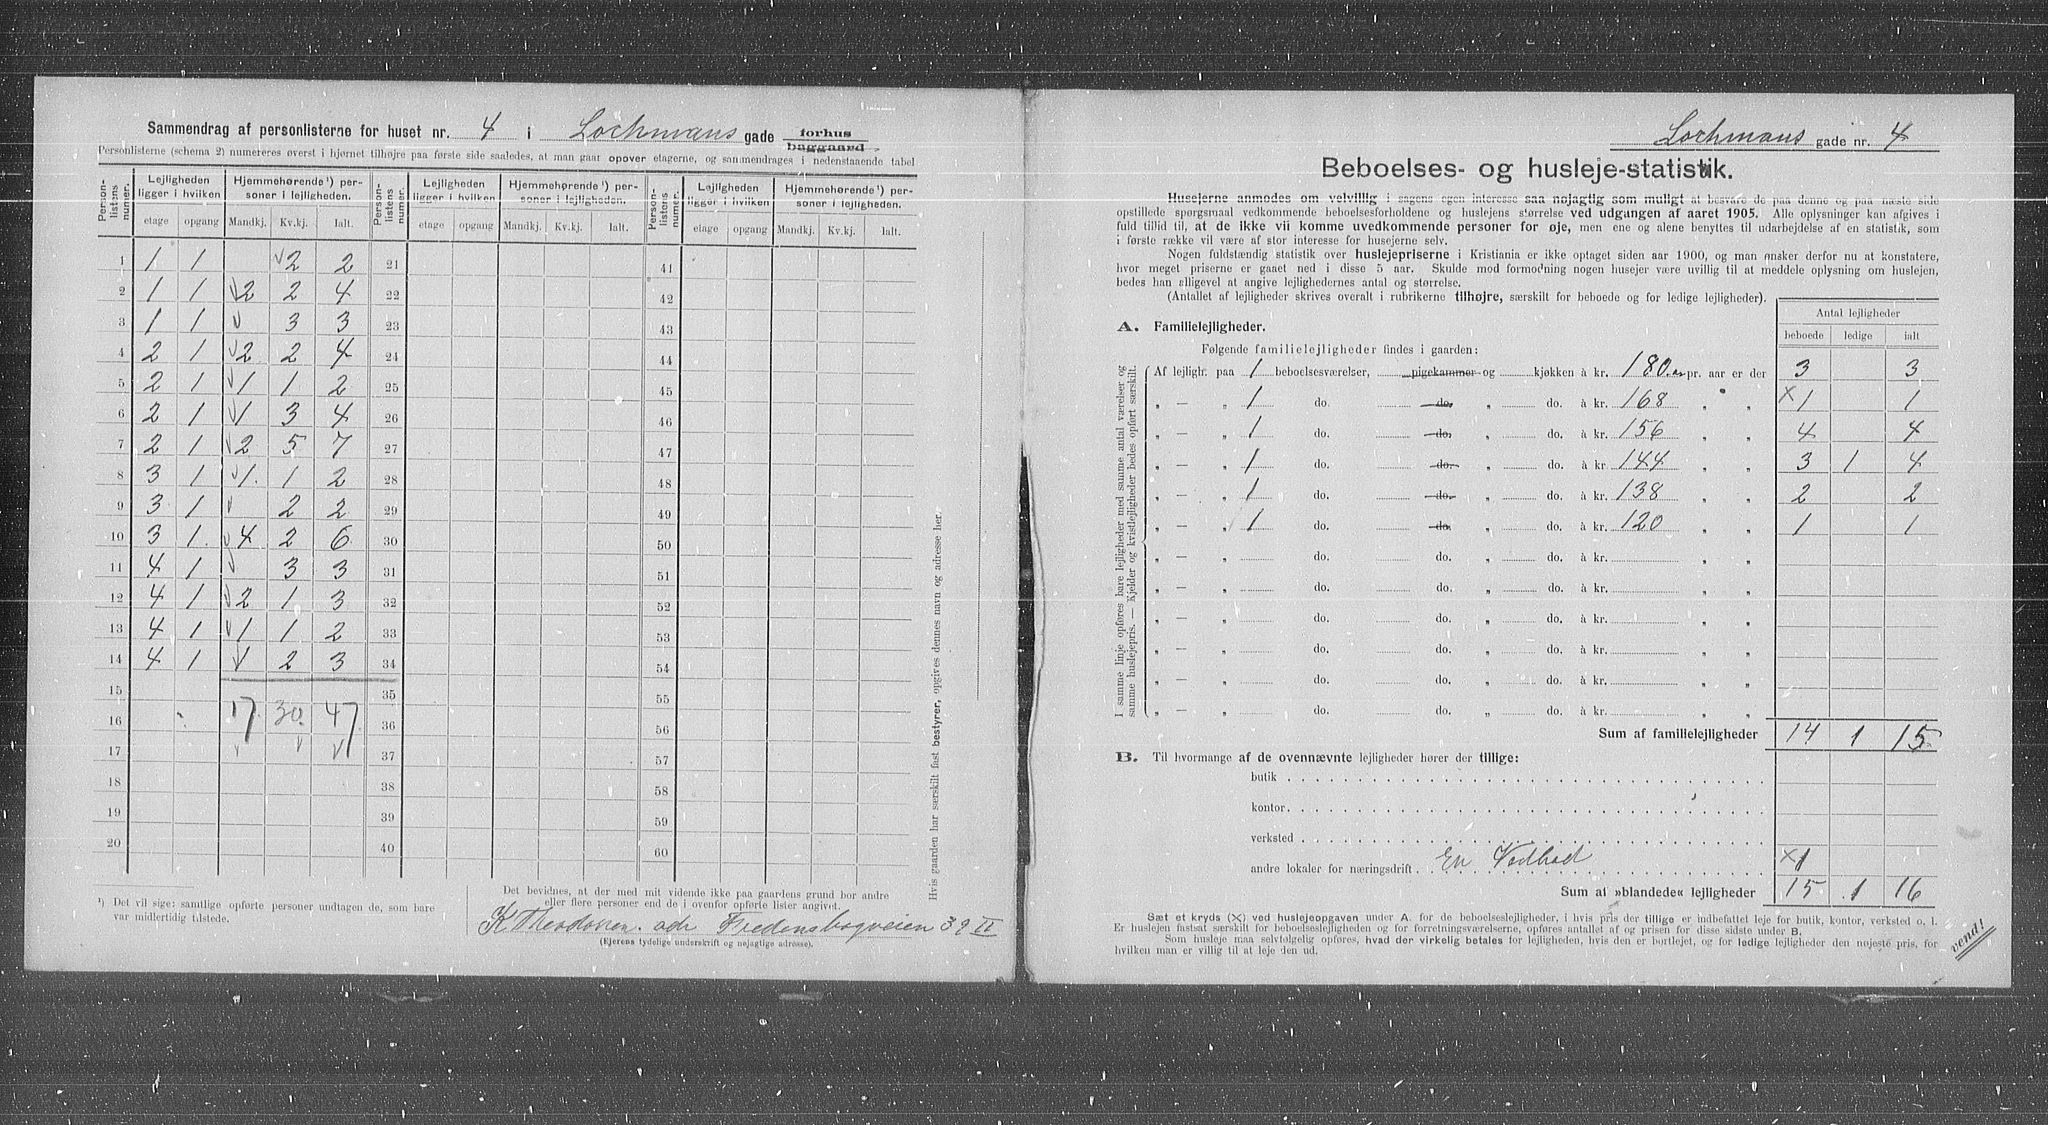 Sammendrag af personlisterne for huset nr. 4 i Lochmans gade forhus
baggaard.
Personlisterne (schema 2) numereres øverst i hjørnet tilhøjre paa første side saaledes, at man gaar opover etagerne, og sammendrages i nedenstaaende tabel
Person-listens numer. Lejligheden ligger i hvilken Hjemmehørende¹) personer i lejligheden. Person-listens numer. Lejligheden ligger i hvilken Hjemmehørende¹) personer i lejligheden. Person-listens numer. Lejligheden ligger i hvilken Hjemmehørende¹) personer i lejligheden.
etage opgang Mandkj. Kv.kj. Ialt. etage opgang Mandkj. Kv.kj. Ialt. etage opgang Mandkj. Kv.kj. Ialt.
1 1 1 2 2 21 41
2 1 1 2 2 4 22 42
3 1 1 3 3 23 43
4 2 1 2 2 4 24 44
5 2 1 1 1 2 25 45
6 2 1 1 3 4 26 46
7 2 1 2 5 7 27 47
8 3 1 1 1 2 28 48
9 3 1 2 2 29 49
10 3 1 4 2 6 30 50
11 4 1 3 3 31 51
12 4 1 2 1 3 32 52
13 4 1 1 1 2 33 53
14 4 1 1 2 3 34 54
15 35 55
16 17 30 47 36 56
17 37 57
18 38 58
19 39 59
20 40 60
Hvis gaarden har særskilt fast bestyrer, opgives dennes navn og adresse her.
¹) Det vil sige: samtlige opførte personer undtagen de, som bare
var midlertidig tilstede.
Det bevidnes, at der med mit vidende ikke paa gaardens grund bor andre
eller flere personer end de i ovenfor opførte lister angivet.
K Theodorsen. adr Fredensborgveien 39 II
(Ejerens tydelige underskrift og nøjagtige adresse).
Lochmans gade nr. 4
Beboelses- og husleje-statistik.
Husejerne anmodes om velvillig i sagens egen interesse saa nøjagtig som muligt at besvare de paa denne og paa næste side
opstillede spørgsmaal vedkommende beboelsesforholdene og huslejens størrelse ved udgangen af aaret 1905. Alle oplysninger kan afgives i
fuld tillid til, at de ikke vil komme uvedkommende personer for øje, men ene og alene benyttes til udarbejdelse af en statistik, som
i første række vil være af stor interesse for husejerne selv.
Nogen fuldstændig statistik over huslejepriserne i Kristiania er ikke optaget siden aar 1900, og man ønsker derfor nu at konstatere,
hvor meget priserne er gaaet ned i disse 5 aar. Skulde mod formodning nogen husejer være uvillig til at meddele oplysning om huslejen,
bedes han alligevel at angive lejlighedernes antal og størrelse.
(Antallet af lejligheder skrives overalt i rubrikerne tilhøjre, særskilt for beboede og for ledige lejligheder).
Antal lejligheder
beboede ledige ialt
A. Familielejligheder.
Følgende familielejligheder findes i gaarden:
I samme linje opføres bare lejligheder med samme antal værelser og
samme huslejepris. — Kjelder og kvistlejligheder bedes opført særskilt.
Af lejligh. paa 1 beboelsesværelser, pigekammer og kjøkken à kr. 180 pr. aar er der 3 3
„ — „ 1 do. do. „ do. à kr. 168 „ „ × 1 1
„ — „ 1 do. do. „ do. à kr. 156 „ „ 4 4
„ — „ 1 do. do. „ do. à kr. 144 „ „ 3 1 4
„ — „ 1 do. do. „ do. à kr. 138 „ „ 2 2
„ — „ 1 do. do. „ do. à kr. 120 „ „ 1 1
„ — „ do. do. „ do. à kr. „ „
„ — „ do. do. „ do. à kr. „ „
„ — „ do. do. „ do. à kr. „ „
„ — „ do. do. „ do. à kr. „ „
„ — „ do. do. „ do. à kr. „ „
„ — „ do. do. „ do. à kr. „ „
Sum af familielejligheder 14 1 15
B. Til hvormange af de ovennævnte lejligheder hører der tillige:
butik
kontor
verksted
andre lokaler for næringsdrift. En Vedbod × 1
Sum af »blandede« lejligheder 15 1 16
Sæt et kryds (X) ved huslejeopgaven under A. for de beboelseslejligheder, i hvis pris der tillige er indbefattet leje for butik, kontor, verksted o. l.
Er huslejen fastsat særskilt for beboelseslejligheden og for forretningsværelserne, opføres antallet af og prisen for disse sidste under B.
Som husleje maa selvfølgelig opføres, hvad der virkelig betales for lejligheden, hvis den er bortlejet, og for ledige lejligheder den nøjeste pris, for
hvilken man er villig til at leje den ud.
vend!